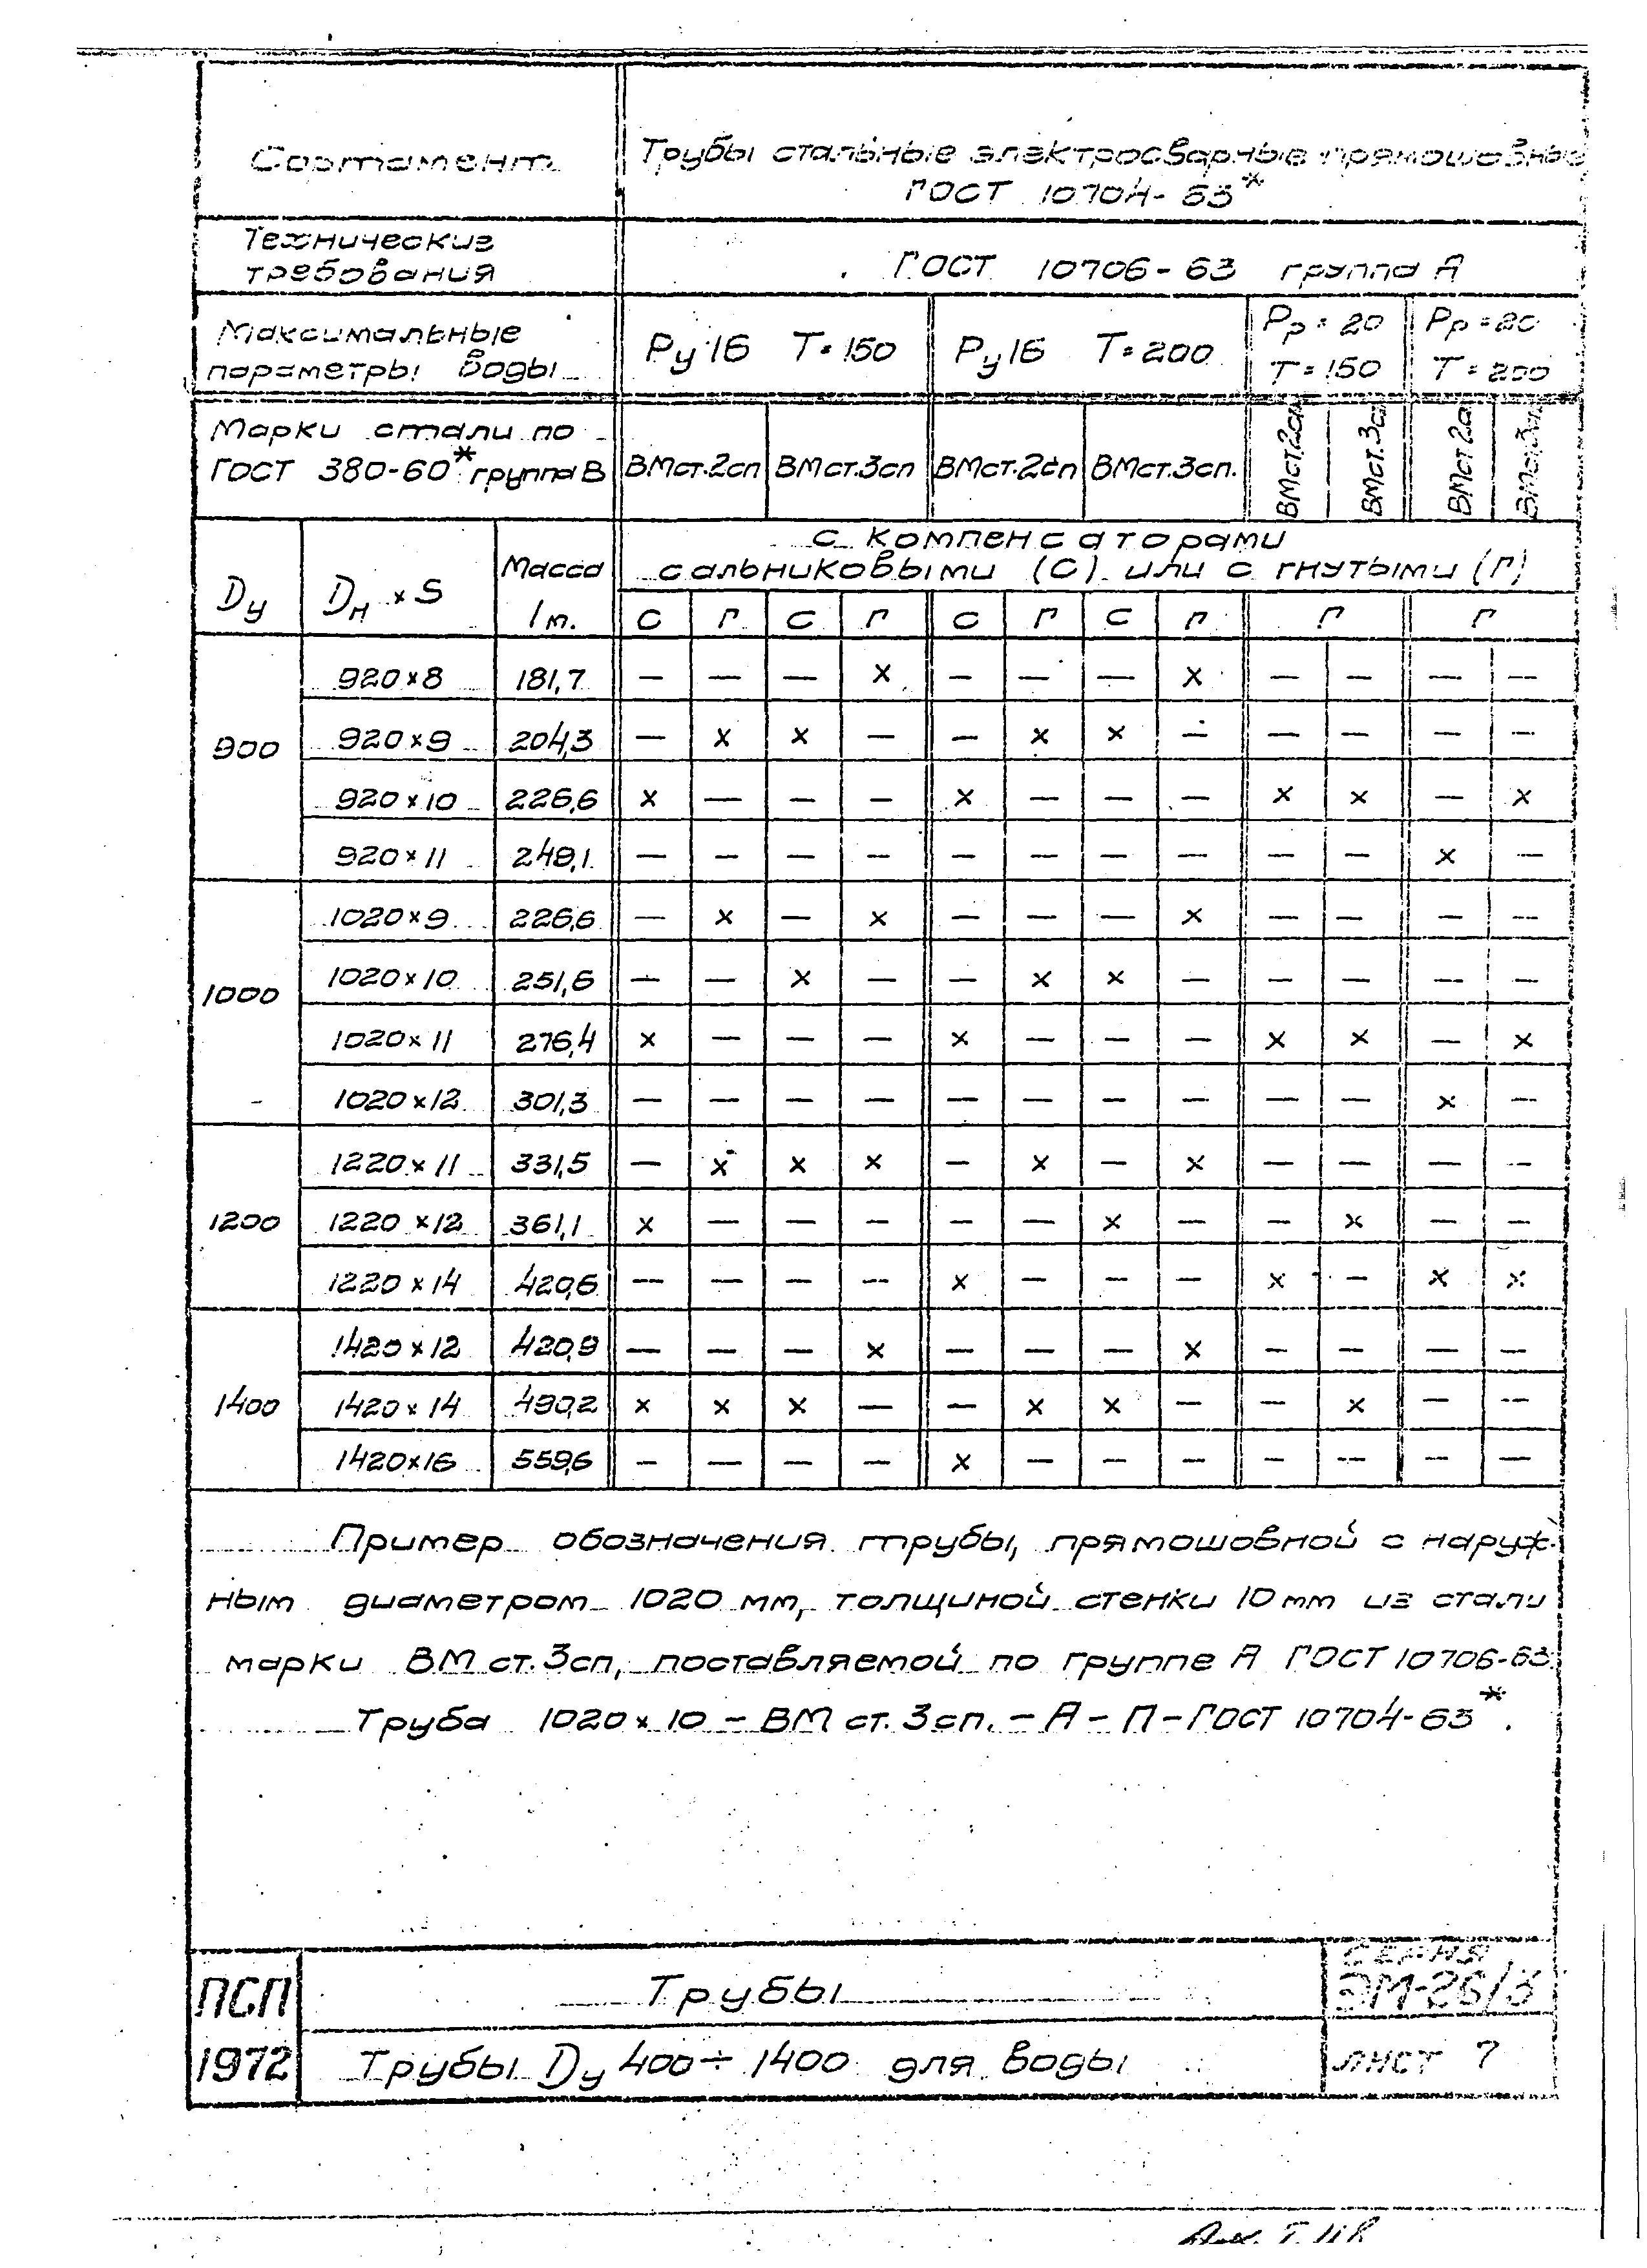 Сортамент
Трубы стальные электросварные прямошовные
ГОСТ 10704-63*
Технические
требования
ГОСТ 10706-63 группа А
Максимальные
параметры воды
Ру 16 Т=150
Ру 16 Т=200
Рр=20
Т=150
Рр=20
Т=200
Марки стали по
ГОСТ 380-60* группа В
ВМст.2сп ВМст.3сп ВМст.2сп ВМст.3сп. ВМст.2сп ВМст.3сп ВМст.2сп ВМст.3сп
Dу
Dн × S
Масса
1м.
с компенсаторами
сальниковыми (С) или с гнутыми (Г)
С Г С Г С Г С Г Г Г
900
920×8 181,7 — — — × — — — × — — — —
920×9 204,3 — × × — — × × — — — — —
920×10 226,6 × — — — × — — — × × — ×
920×11 249,1 — — — — — — — — — — × —
1000
1020×9 226,6 — × — × — — — × — — — —
1020×10 251,6 — — × — — × × — — — — —
1020×11 276,4 × — — — × — — — × × — ×
1020×12 301,3 — — — — — — — — — — × —
1200
1220×11 331,5 — × × × — × — × — — — —
1220×12 361,1 × — — — — — × — — × — —
1220×14 420,6 — — — — × — — — × — × ×
1400
1420×12 420,9 — — — × — — — × — — — —
1420×14 490,2 × × × — — × × — — × — —
1420×16 559,6 — — — — × — — — — — — —
Пример обозначения трубы, прямошовной с наруж-
ным диаметром 1020 мм, толщиной стенки 10 мм из стали
марки ВМ ст. 3сп, поставляемой по группе А ГОСТ 10706-63.
Труба 1020×10 – ВМ ст. 3сп. – А – П – ГОСТ 10704-63*.
ПСП
1972
Трубы
Трубы Dу 400÷1400 для воды
Серия
ЭМ-26/3
лист 7